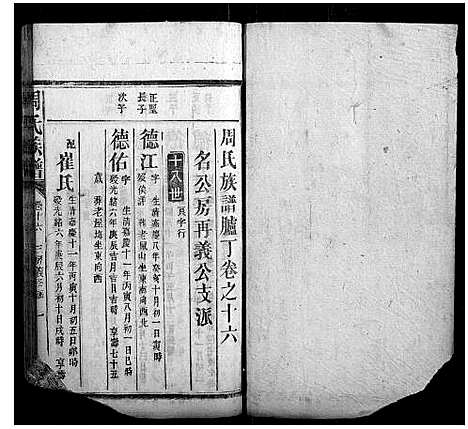 周氏族譜臚丁卷之十六
名公房再義公支派
十八世 良字行
正聖長子
德江 字 生清嘉慶八年癸亥十月初一日寅時
歿俟詳 葬老鼠山坐東南向西北
次子
德佑 字 生清嘉慶十一年丙寅八月初一日巳時
歿光緒六年庚辰吉月吉日吉時 享壽七十五
歲 葬老屋塲坐東向西
配
崔氏 生清嘉慶十一年丙寅十月初五日卯時
歿光緒六年庚辰六月初十日戌時 享壽
周氏族譜
卷十六